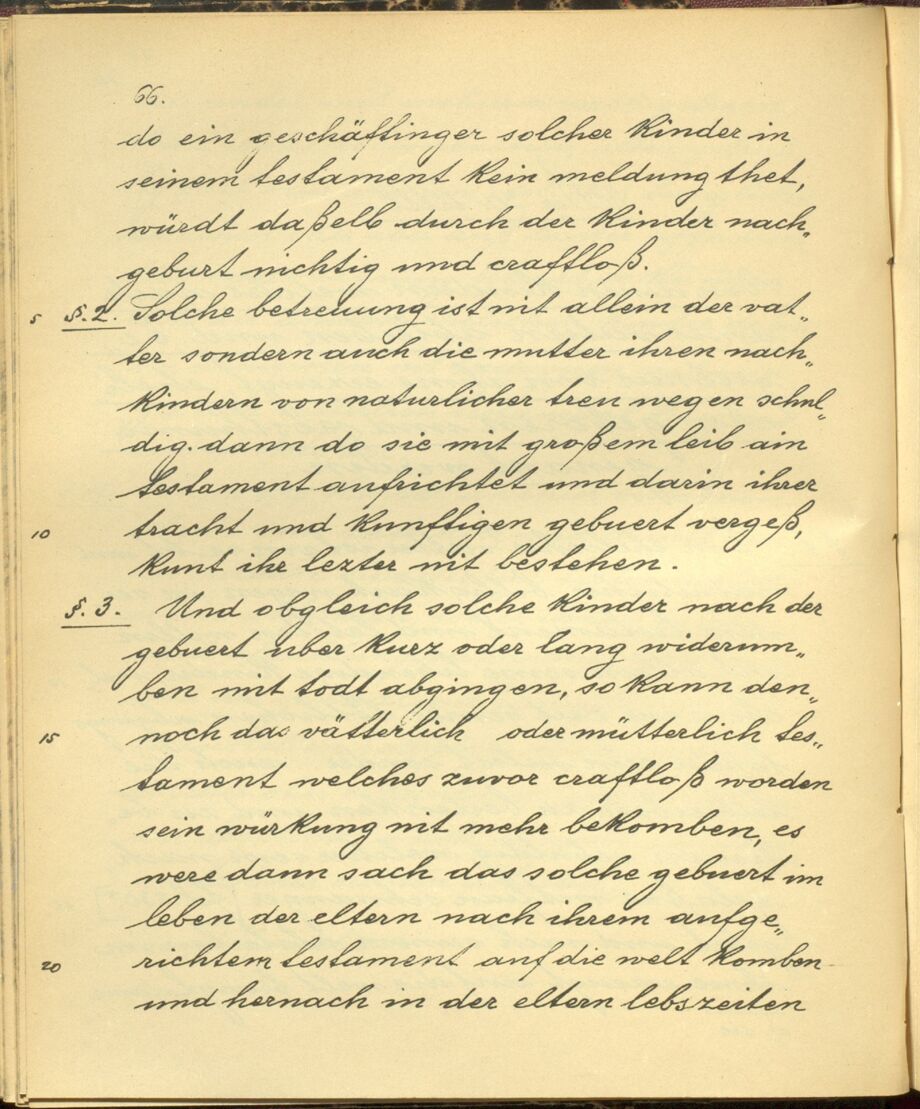 66.
do ein geschäfftinger solcher kinder in
seinem testament kein meldung thet,
würdt daßelb durch der kinder nach„
geburt nichtig und craftloß.
5 §.2. Solche betreuung ist nit allein der vat„
ter sondern auch die mutter ihren nach„
kindern von naturlicher treu wegen schul„
dig. dann do sie mit großem leib ain
testament aufrichtet und darin ihrer
10 tracht und kunftigen gebuert vergeß,
kunt ihr lezter nit bestehen.
§.3. Und obgleich solche kinder nach der
gebuert uber kurz oder lang widerum„
ben mit todt abgingen, so kann den„
15 noch das vätterlich oder mütterlich tes„
tament welches zuvor craftloß worden
sein würkung nit mehr bekomben, es
were dann sach das solche gebuert im
leben der eltern nach ihrem aufge„
20 richtem testament auf die welt komben
und hernach in der eltern lebszeiten